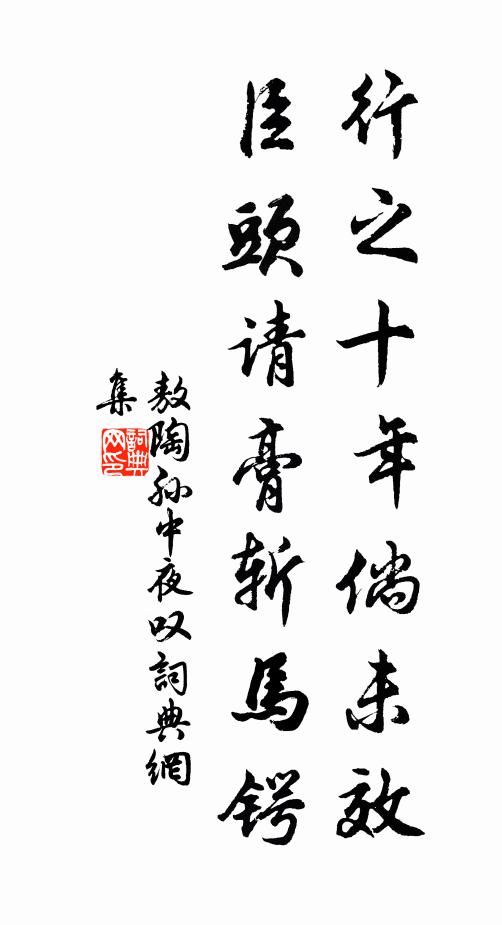 行之十年倘未效
臣頭请膏斩馬锷
敖陶孙中夜叹詞典網
集
詞典網印